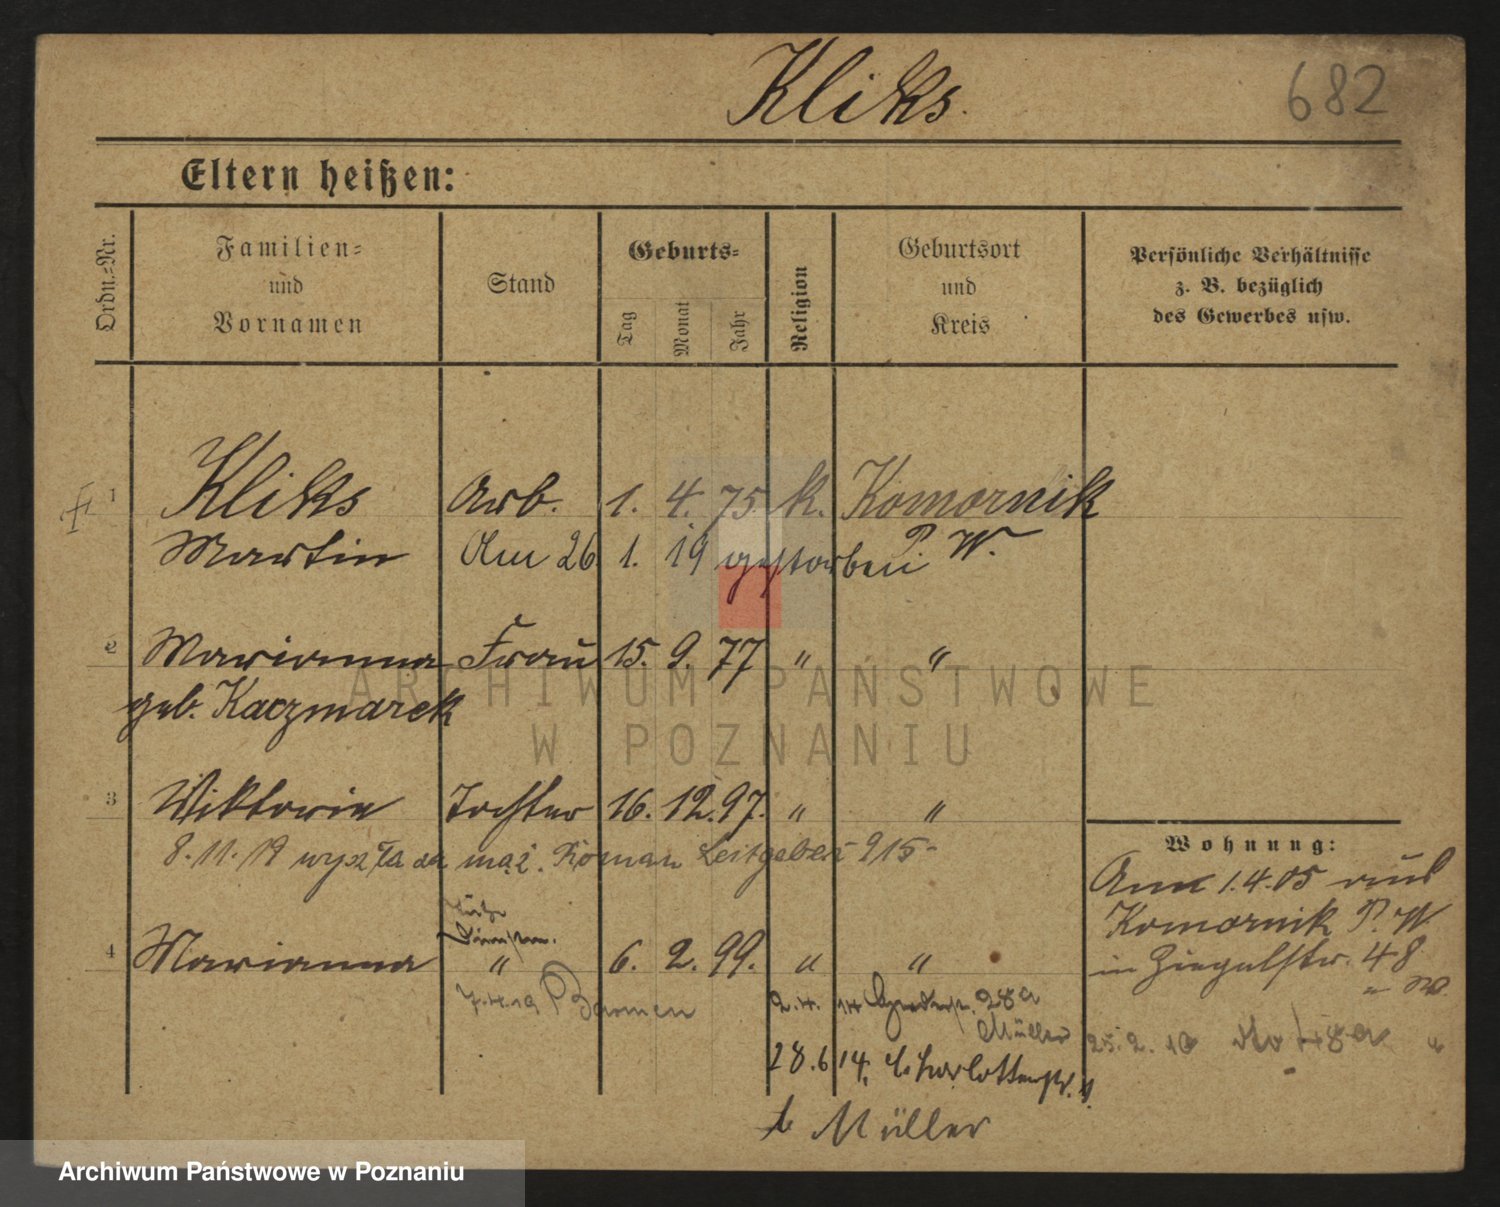 Kliks.
682
Eltern heißen:
Ordn.=Nr.
Familien=
und
Vornamen
Stand
Geburts=
Tag
Monat
Jahr
Religion
Geburtsort
und
Kreis
Persönliche Verhältnisse
z. B. bezüglich
des Gewerbes usw.
1 Kliks Arb. 1. 4. 75. k. Komornik
Martin Am 26. 1. 19 gestorben P. W.
2 Marianna Frau 15. 9. 77 " "
geb. Kaczmarek
3 Wiktoria Tochter 16. 12. 97. " "
8.11.19 wyszła za mąż. Roman Leitgeber 915-
4 Marianna " 6. 2. 99. " "
7.4.19 Barmen
2.4. 14 28a
Müller
28.6 14. Charlottenstr.
b Müller
Wohnung:
Am 1.4.05 aus
Komornik P. W
in Ziegelstr. 48
25.2.10 do 48a "
ARCHIWUM PAŃSTWOWE
W POZNANIU
Archiwum Państwowe w Poznaniu